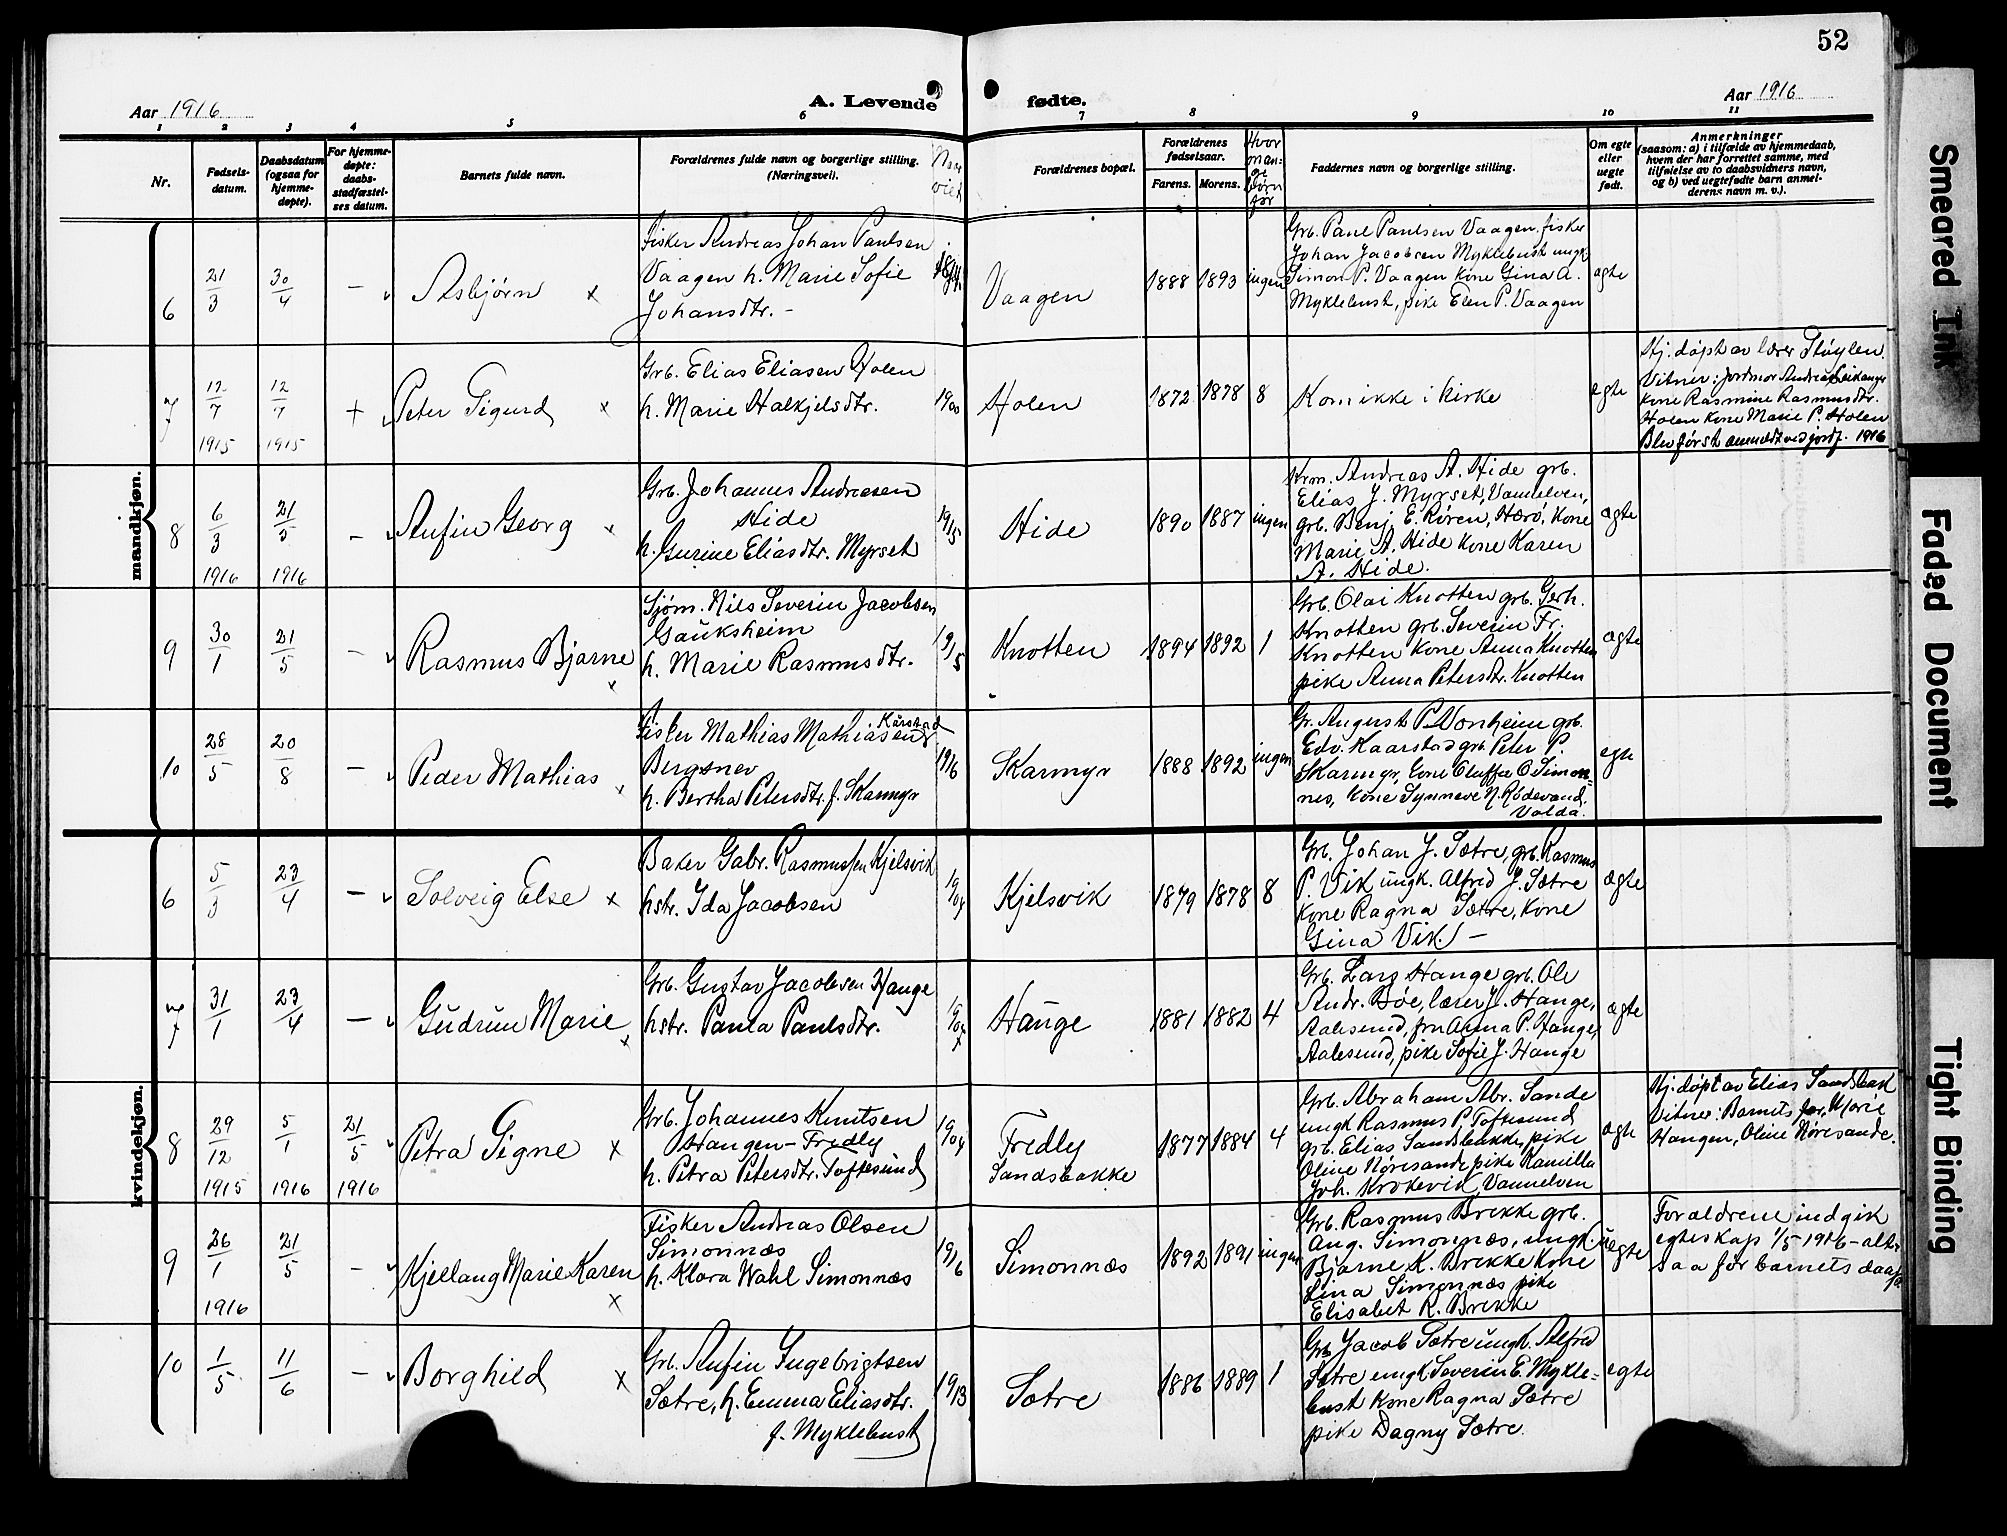 52
Aar 1916
A. Levende fødte.
Aar 1916
1 2 3 4 5 6 7 8 9 10 11
Nr.
Fødsels-
datum.
Daabsdatum
(ogsaa for
hjemme-
døpte).
For hjemme-
døpte:
daabs-
stadfæstel-
ses datum.
Barnets fulde navn.
Forældrenes fulde navn og borgerlige stilling.
(Næringsvei).
Naar
viet
Forældrenes bopæl.
Forældrenes
fødselsaar.
Farens.
Morens.
Hvor
man-
ge
børn
før
Faddernes navn og borgerlige stilling.
Om egte
eller
uegte
født.
Anmerkninger
(saasom: a) i tilfælde av hjemmedaab,
hvem der har forrettet samme, med
tilføielse av to daabsvidners navn,
og b) ved uegtefødte barn anmel-
derens navn m. v.).
mandkjøn.
6
21/3
30/4
-
Asbjørn x
Fisker Andreas Johan Paulsen
Vaagen h. Marie Sofie
Johansdtr. -
Vaagen
1888
1893
ingen
Grb. Paul Paulsen Vaagen, fisker
Johan Jacobsen Myklebust ungk
Simon P. Vaagen kone Gina A.
Myklebust, pike Elen P. Vaagen
ægte
7
12/7
1915
12/7
1915
+
Peter Sigurd x
Grb. Elias Eliasen Holen
h. Marie Halkjelsdtr.
1900
Holen
1872
1878
8
Kom ikke i kirke
egte
Hj. døpt av lærer Støylen.
Vitner: Jordmor Andrea Leikanger
kone Rasmine Rasmusdtr.
Holen kone Marie P. Holen
Blev først anmeldt ved jordf. 1916
8
6/3
1916
21/5
1916
-
Anfin Georg x
Grb. Johannes Andreasen
Hide
h. Gurine Eliasdtr. Myrset
1915
Hide
1890
1887
ingen
Krm. Andreas A. Hide grb.
Elias J. Myrset, Vannelven,
grb. Benj. E. Røren, Herø, kone
Marie A. Hide kone Karen
A. Hide.
ægte
9
30/1
21/5
-
Rasmus Bjarne x
Sjøm. Nils Severin Jacobsen
Gauksheim
h. Marie Rasmusdtr.
1915
Knotten
1894
1892
1
Grb. Olai Knotten grb. Gerh.
Knotten grb. Severin Fr.
Knotten kone Anna Knotten
pike Anna Petersdtr. Knotten
ægte
10
28/5
20/8
-
Peder Mathias x
Kårstad
Fisker Mathias Mathiasen
Bergsnev
h. Bertha Petersdtr. f. Skarmyr
1916
Skarmyr
1888
1892
ingen
Gr. August P. Vonheim grb.
Edv. Kaarstad grb. Peter P.
Skarmyr, kone Oluffa O. Simon-
nes, kone Synneve N. Rødevand.
Volda.
egte
kvindekjøn.
6
5/3
23/4
-
Solveig Else x
Baker Gabr. Rasmussen Kjelsvik
hstr. Ida Jacobsen
1904
Kjelsvik
1879
1878
8
Grb. Johan J. Sætre, grb. Rasmus
P. Vik ungk. Alfred J. Sætre
kone Ragna Sætre, kone
Gina Vik. -
ægte
7
31/1
23/4
-
Gudrun Marie x
Grb. Gustav Jacobsen Hauge
hstr. Paula Paulsdtr.
Hauge
1881
1882
4
Grb. Lars Hauge grb. Ole
Andr. Bøe, lærer J. Hauge,
Aalesund, fru Anna P. Hauge,
Aalesund, pike Sofie J. Hauge
ægte
8
29/12
1915
5/1
1916
21/5
1916
Petra Signe x
Grb. Johannes Knutsen
Haugen - Fredly
h. Petra Petersdtr. Toftesund
1904
Fredly
Sandsbakke
1877
1884
4
Grb. Abraham Abr. Sande
ungk Rasmus P. Toftesund
grb. Elias Sandsbakke, pike
Oline Nøresande pike Kamilla
Joh. Krokevik, Vannelven
ægte
Hj. døpt av Elias Sandsbakk
Vitner: Barnets far, Marie
Haugen, Oline Nøresande.
9
26/1
1916
21/5
-
Kjellaug Marie Karen x
Fisker Andreas Olsen
Simonnæs
h. Klara Wahl Simonnæs
1916
Simonnæs
1892
1891
ingen
Grb. Rasmus Brekke grb.
Aug. Simonnæs, ungk.
Bjarne K. Brekke kone
Lina Simonnæs pike
Elisabet R. Brekke
uegte
Forældrene indgik
egteskap 1/5 1916 - alt-
saa før barnets daab
10
1/5
11/6
-
Borghild x
Grb. Anfin Ingebrigtsen
Sætre, h. Emma Eliasdtr.
f. Myklebust
1913
Sætre
1886
1889
1
Grb Jacob Sætre ungk. Alfred
Sætre ungk Severin E. Mykle-
bust kone Ragna Sætre
pike Dagny Sætre.
egte
Smeared Ink
Faded Document
Tight Binding